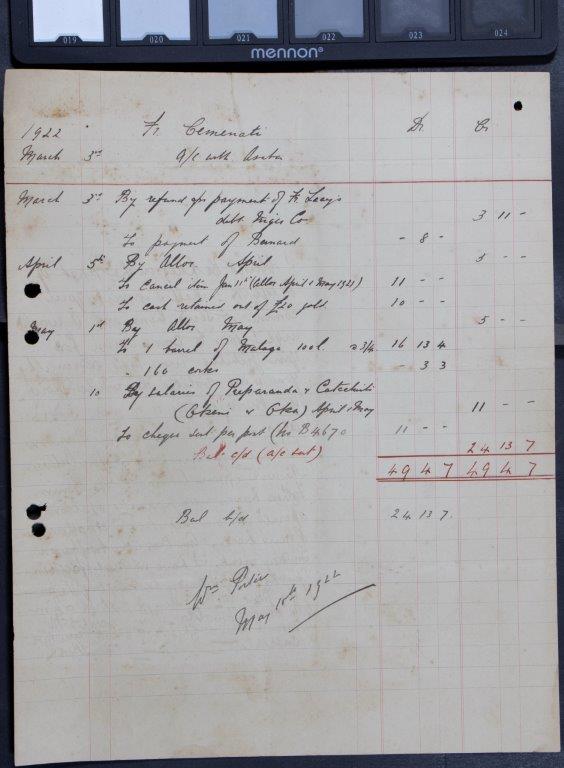 019 020 021 022 023 024
mennon®
1922 Fr. Cemenati Dr. Cr.
March 3rd a/c with Asaba
March 3rd By refund of payment of Fr
debt Niger Co 3 11 -
To payment of Bernard - 8 -
April 5th By Alloc April 5 - -
To Cancel item Jan 11th (Alloc April & May 1921) 11 - -
To cash retained out of £20 gold 10 - -
May 1st By Alloc May 5 - -
To 1 barrel of Malaga 100 l @ 3/4 16 13 4
- 160 corks - 3 3
10 By salaries of Preparanda & Catechists
(Okeni & Oka) April & May 11 - -
To cheque sent per post (No B4670 11 - -
Bal c/d (a/c sent) 24 13 7
49 4 7 49 4 7
Bal b/d 24 13 7.
Wm
May 1922